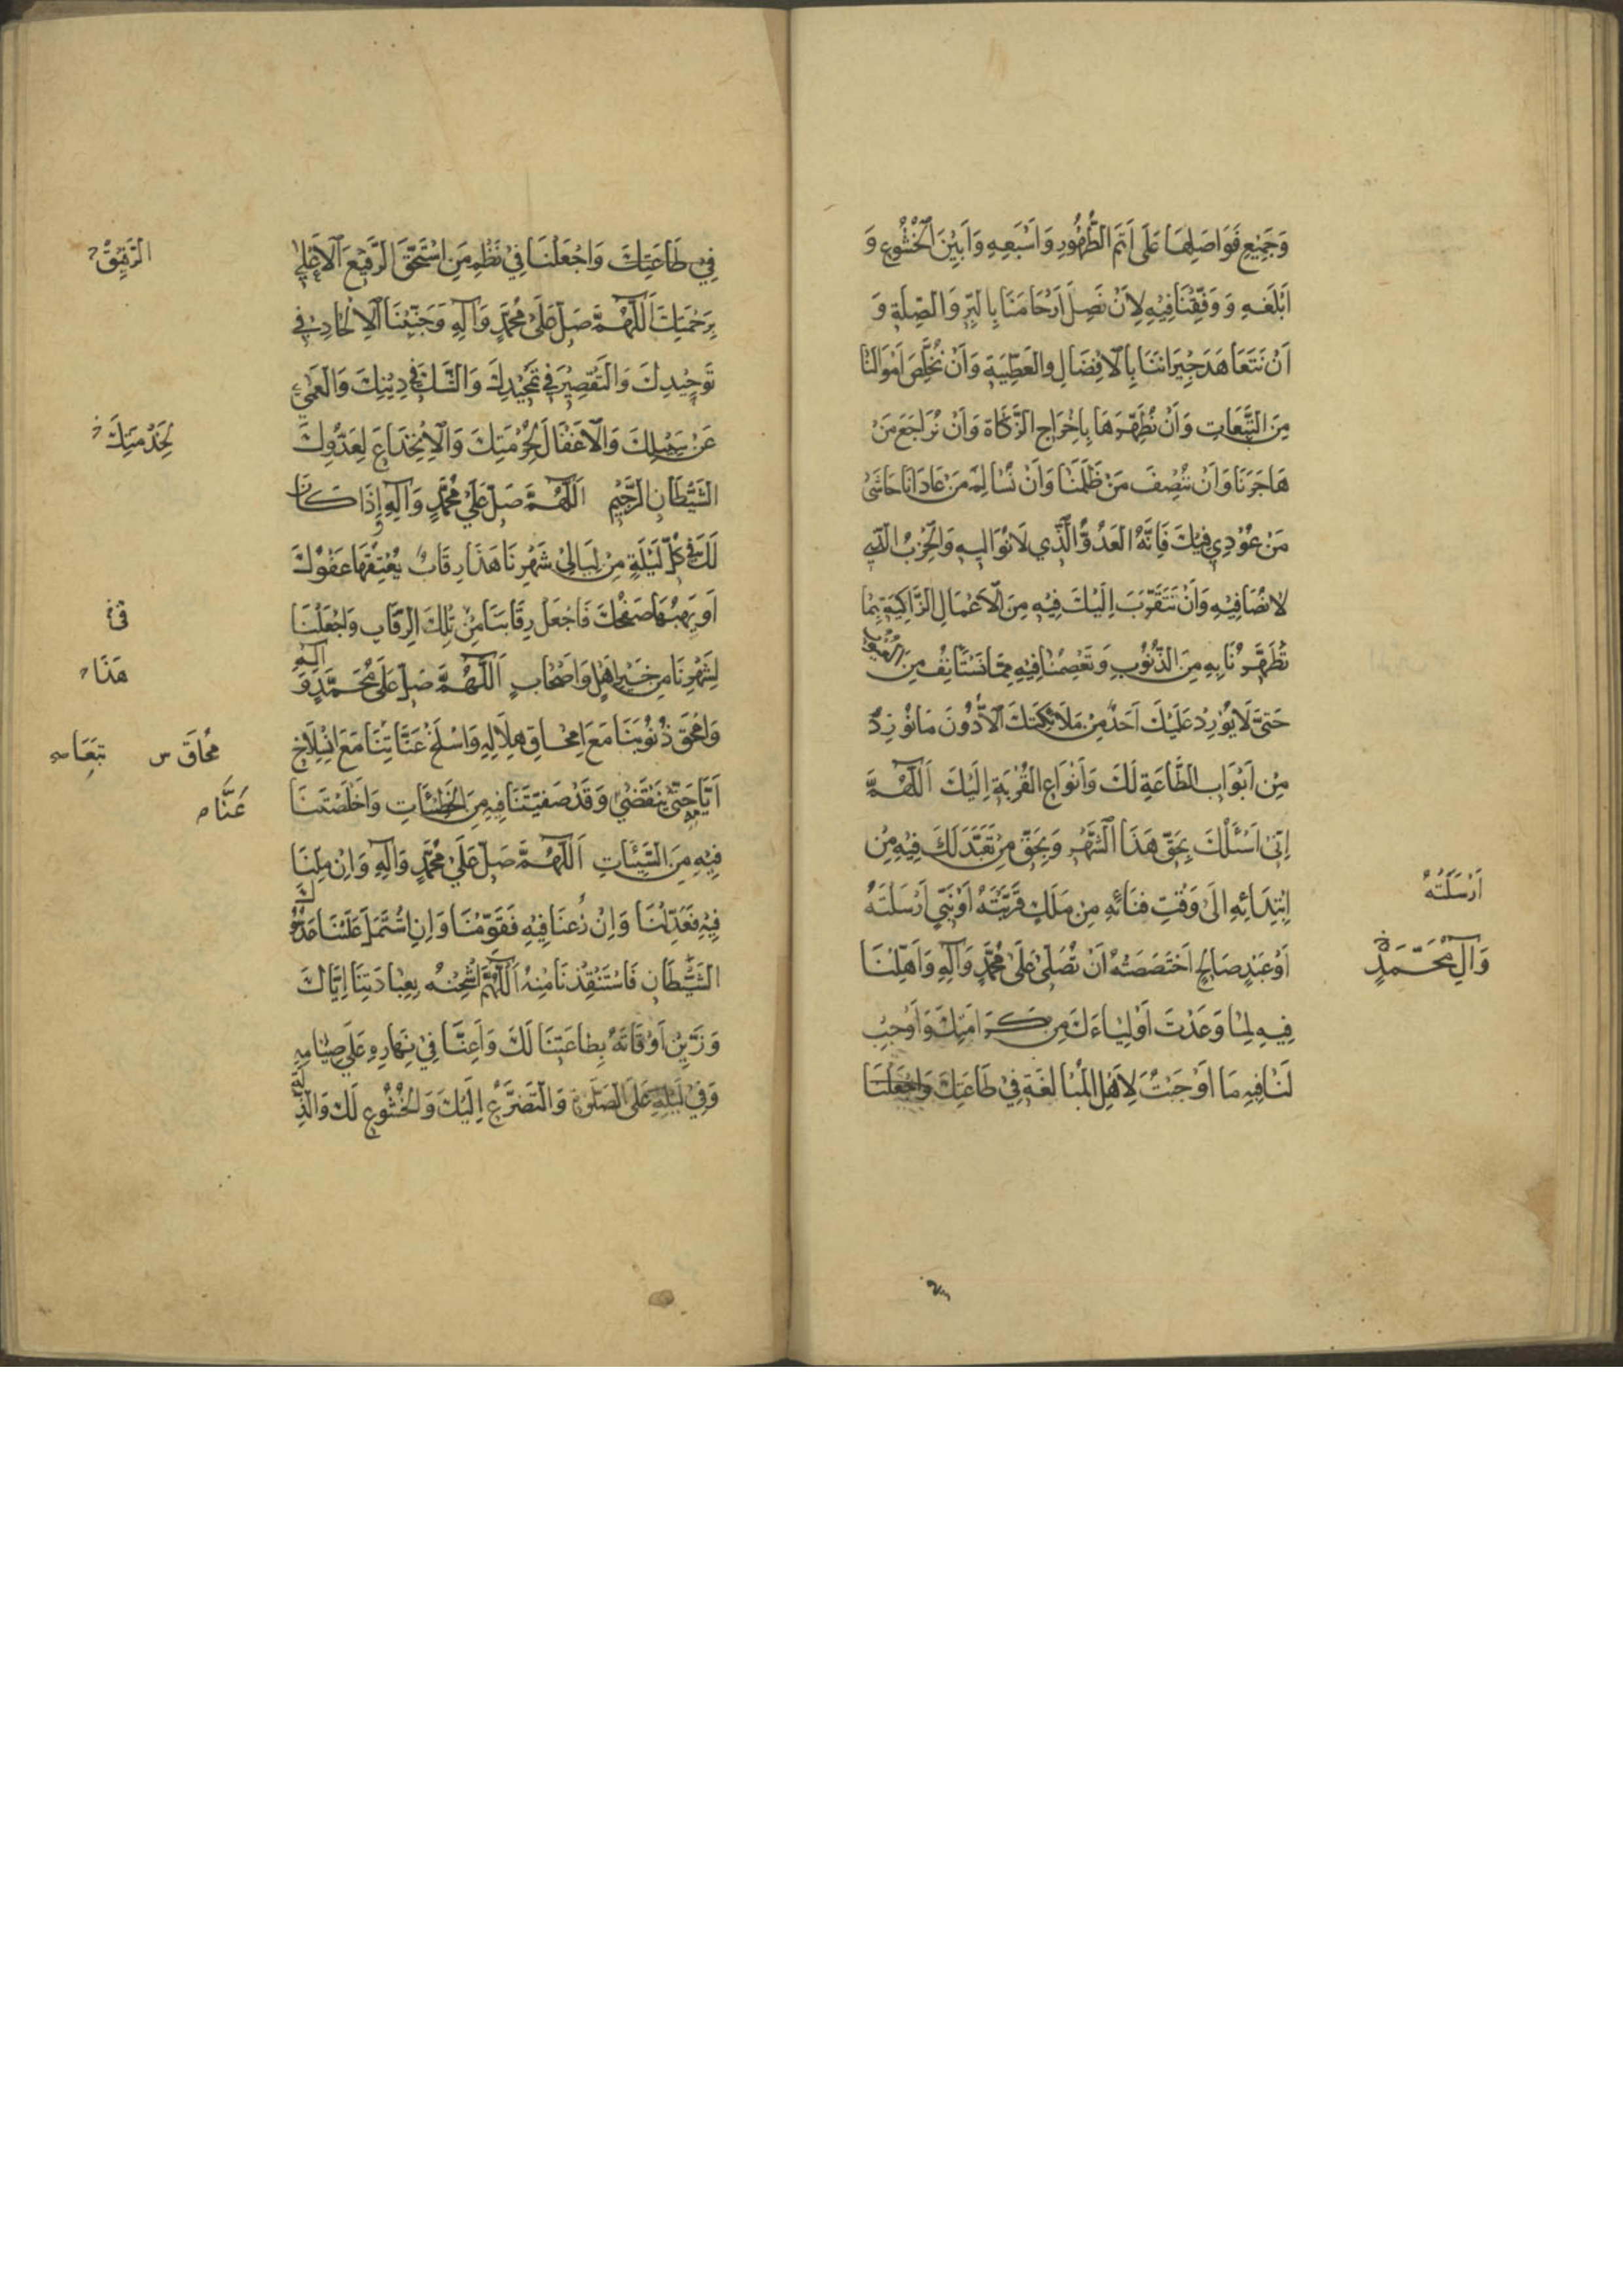 وَجَمِيعِ فَوَاضِلِهَا عَلَى اَتَمِّ الطَّهُورِ وَاَسْبَغِهِ وَاَبْيَنِ الْخُشُوعِ وَ
اَبْلَغِهِ وَوَفِّقْنَا فِيهِ لِاَنْ نَصِلَ اَرْحَامَنَا بِالْبِرِّ وَالصِّلَةِ وَ
اَنْ نَتَعَاهَدَ جِيرَانَنَا بِالْاِفْضَالِ وَالْعَطِيَّةِ وَاَنْ نُخَلِّصَ اَمْوَالَنَا
مِنَ التَّبِعَاتِ وَاَنْ نُطَهِّرَهَا بِاِخْرَاجِ الزَّكَاةِ وَاَنْ نُرَاجِعَ مَنْ
هَاجَرَنَا وَاَنْ نُنْصِفَ مَنْ ظَلَمَنَا وَاَنْ نُسَالِمَ مَنْ عَادَانَا حَاشَى
مَنْ عُوْدِيَ فِيكَ فَاِنَّهُ الْعَدُوُّ الَّذِي لَا نُوَالِيهِ وَالْحِزْبُ الَّذِي
لَا نُصَافِيهِ وَاَنْ نَتَقَرَّبَ اِلَيْكَ فِيهِ مِنَ الْاَعْمَالِ الزَّاكِيَةِ بِمَا
تُطَهِّرُنَا بِهِ مِنَ الذُّنُوبِ وَتَعْصِمُنَا فِيهِ مِمَّا نَسْتَأنِفُ مِنَ الْعُيُوبِ
حَتَّى لَا يُوْرِدَ عَلَيْكَ اَحَدٌ مِنْ مَلَائِكَتِكَ اِلَّا دُونَ مَا نُوْرِدُ
مِنْ اَبْوَابِ الطَّاعَةِ لَكَ وَاَنْوَاعِ الْقُرْبَةِ اِلَيْكَ اَللّٰهُمَّ
اِنّي اَسْئَلُكَ بِحَقِّ هَذَا الشَّهْرِ وَبِحَقِّ مَنْ تَعَبَّدَ لَكَ فِيهِ مِنْ
اِبْتِدَائِهِ اِلَى وَقْتِ فَنَائِهِ مِنْ مَلَكٍ قَرَّبْتَهُ اَوْ نَبِيٍّ اَرْسَلْتَهُ
اَرْسَلْتَهُ
اَوْ عَبْدٍ صَالِحٍ اخْتَصَصْتَهُ اَنْ تُصَلِّيَ عَلَى مُحَمَّدٍ وَآلِهِ وَاَهِّلْنَا
وَآلِ مُحَمَّدٍ
فِيهِ لِمَا وَعَدْتَ اَوْلِيَاءَكَ مِنْ كَرَامَتِكَ وَاَوْجِبْ
لَنَا فِيهِ مَا اَوْجَبْتَ لِاَهْلِ الْمُبَالَغَةِ فِي طَاعَتِكَ وَاجْعَلْنَا
فِي طَاعَتِكَ وَاجْعَلْنَا فِي نَظْمِ مَنِ اسْتَحَقَّ الرَّفِيعَ الْاَعْلَى
الرَّفِيقَ
بِرَحْمَتِكَ اَللّٰهُمَّ صَلِّ عَلَى مُحَمَّدٍ وَآلِهِ وَجَنِّبْنَا الْاِلْحَادَ فِي
تَوْحِيدِكَ وَالتَّقْصِيرَ فِي تَمْجِيدِكَ وَالشَّكَّ فِي دِينِكَ وَالْعَمَى
عَنْ سَبِيلِكَ وَالْاِغْفَالَ لِحُرْمَتِكَ وَالْاِنْخِدَاعَ لِعَدُوِّكَ
لِخِدْمَتِكَ
الشَّيْطَانِ الرَّجِيمِ اَللّٰهُمَّ صَلِّ عَلَى مُحَمَّدٍ وَآلِهِ وَاِذَا كَانَ
لَكَ فِي كُلِّ لَيْلَةٍ مِنْ لَيَالِي شَهْرِنَا هَذَا رِقَابٌ يُعْتِقُهَا عَفْوُكَ
اَوْ يَهَبُهَا صَفْحُكَ فَاجْعَلْ رِقَابَنَا مِنْ تِلْكَ الرِّقَابِ وَاجْعَلْنَا
فِي
لِشَهْرِنَا مِنْ خَيْرِ اَهْلٍ وَاَصْحَابٍ اَللّٰهُمَّ صَلِّ عَلَى مُحَمَّدٍ وَآلِهِ
هَذَا
وَامْحَقْ ذُنُوبَنَا مَعَ امْحَاقِ هِلَالِهِ وَاسْلَخْ عَنَّا تَبِعَاتِنَا مَعَ انْسِلَاخِ
مُحَاقَ س تَبِعَا
اَيَّامِهِ حَتَّى يَنْقَضِيَ وَقَدْ صَفَّيْتَنَا فِيهِ مِنَ الْخَطِيئَاتِ وَاَخْلَصْتَنَا
عَنَّا
فِيهِ مِنَ السَّيِّئَاتِ اَللّٰهُمَّ صَلِّ عَلَى مُحَمَّدٍ وَآلِهِ وَاِنْ مِلْنَا
فِيهِ فَعَدِّلْنَا وَاِنْ زُغْنَا فِيهِ فَقَوِّمْنَا وَاِنِ اشْتَمَلَ عَلَيْنَا عَدُوُّكَ
الشَّيْطَانُ فَاسْتَنْقِذْنَا مِنْهُ اَللّٰهُمَّ اشْحَنْهُ بِعِبَادَتِنَا اِيَّاكَ
وَزَيِّنْ اَوْقَاتَهُ بِطَاعَتِنَا لَكَ وَاَعِنَّا فِي نَهَارِهِ عَلَى صِيَامِهِ
وَفِي لَيْلِهِ عَلَى الصَّلٰوةِ وَالتَّضَرُّعِ اِلَيْكَ وَالْخُشُوعِ لَكَ وَالذِّلَّةِ